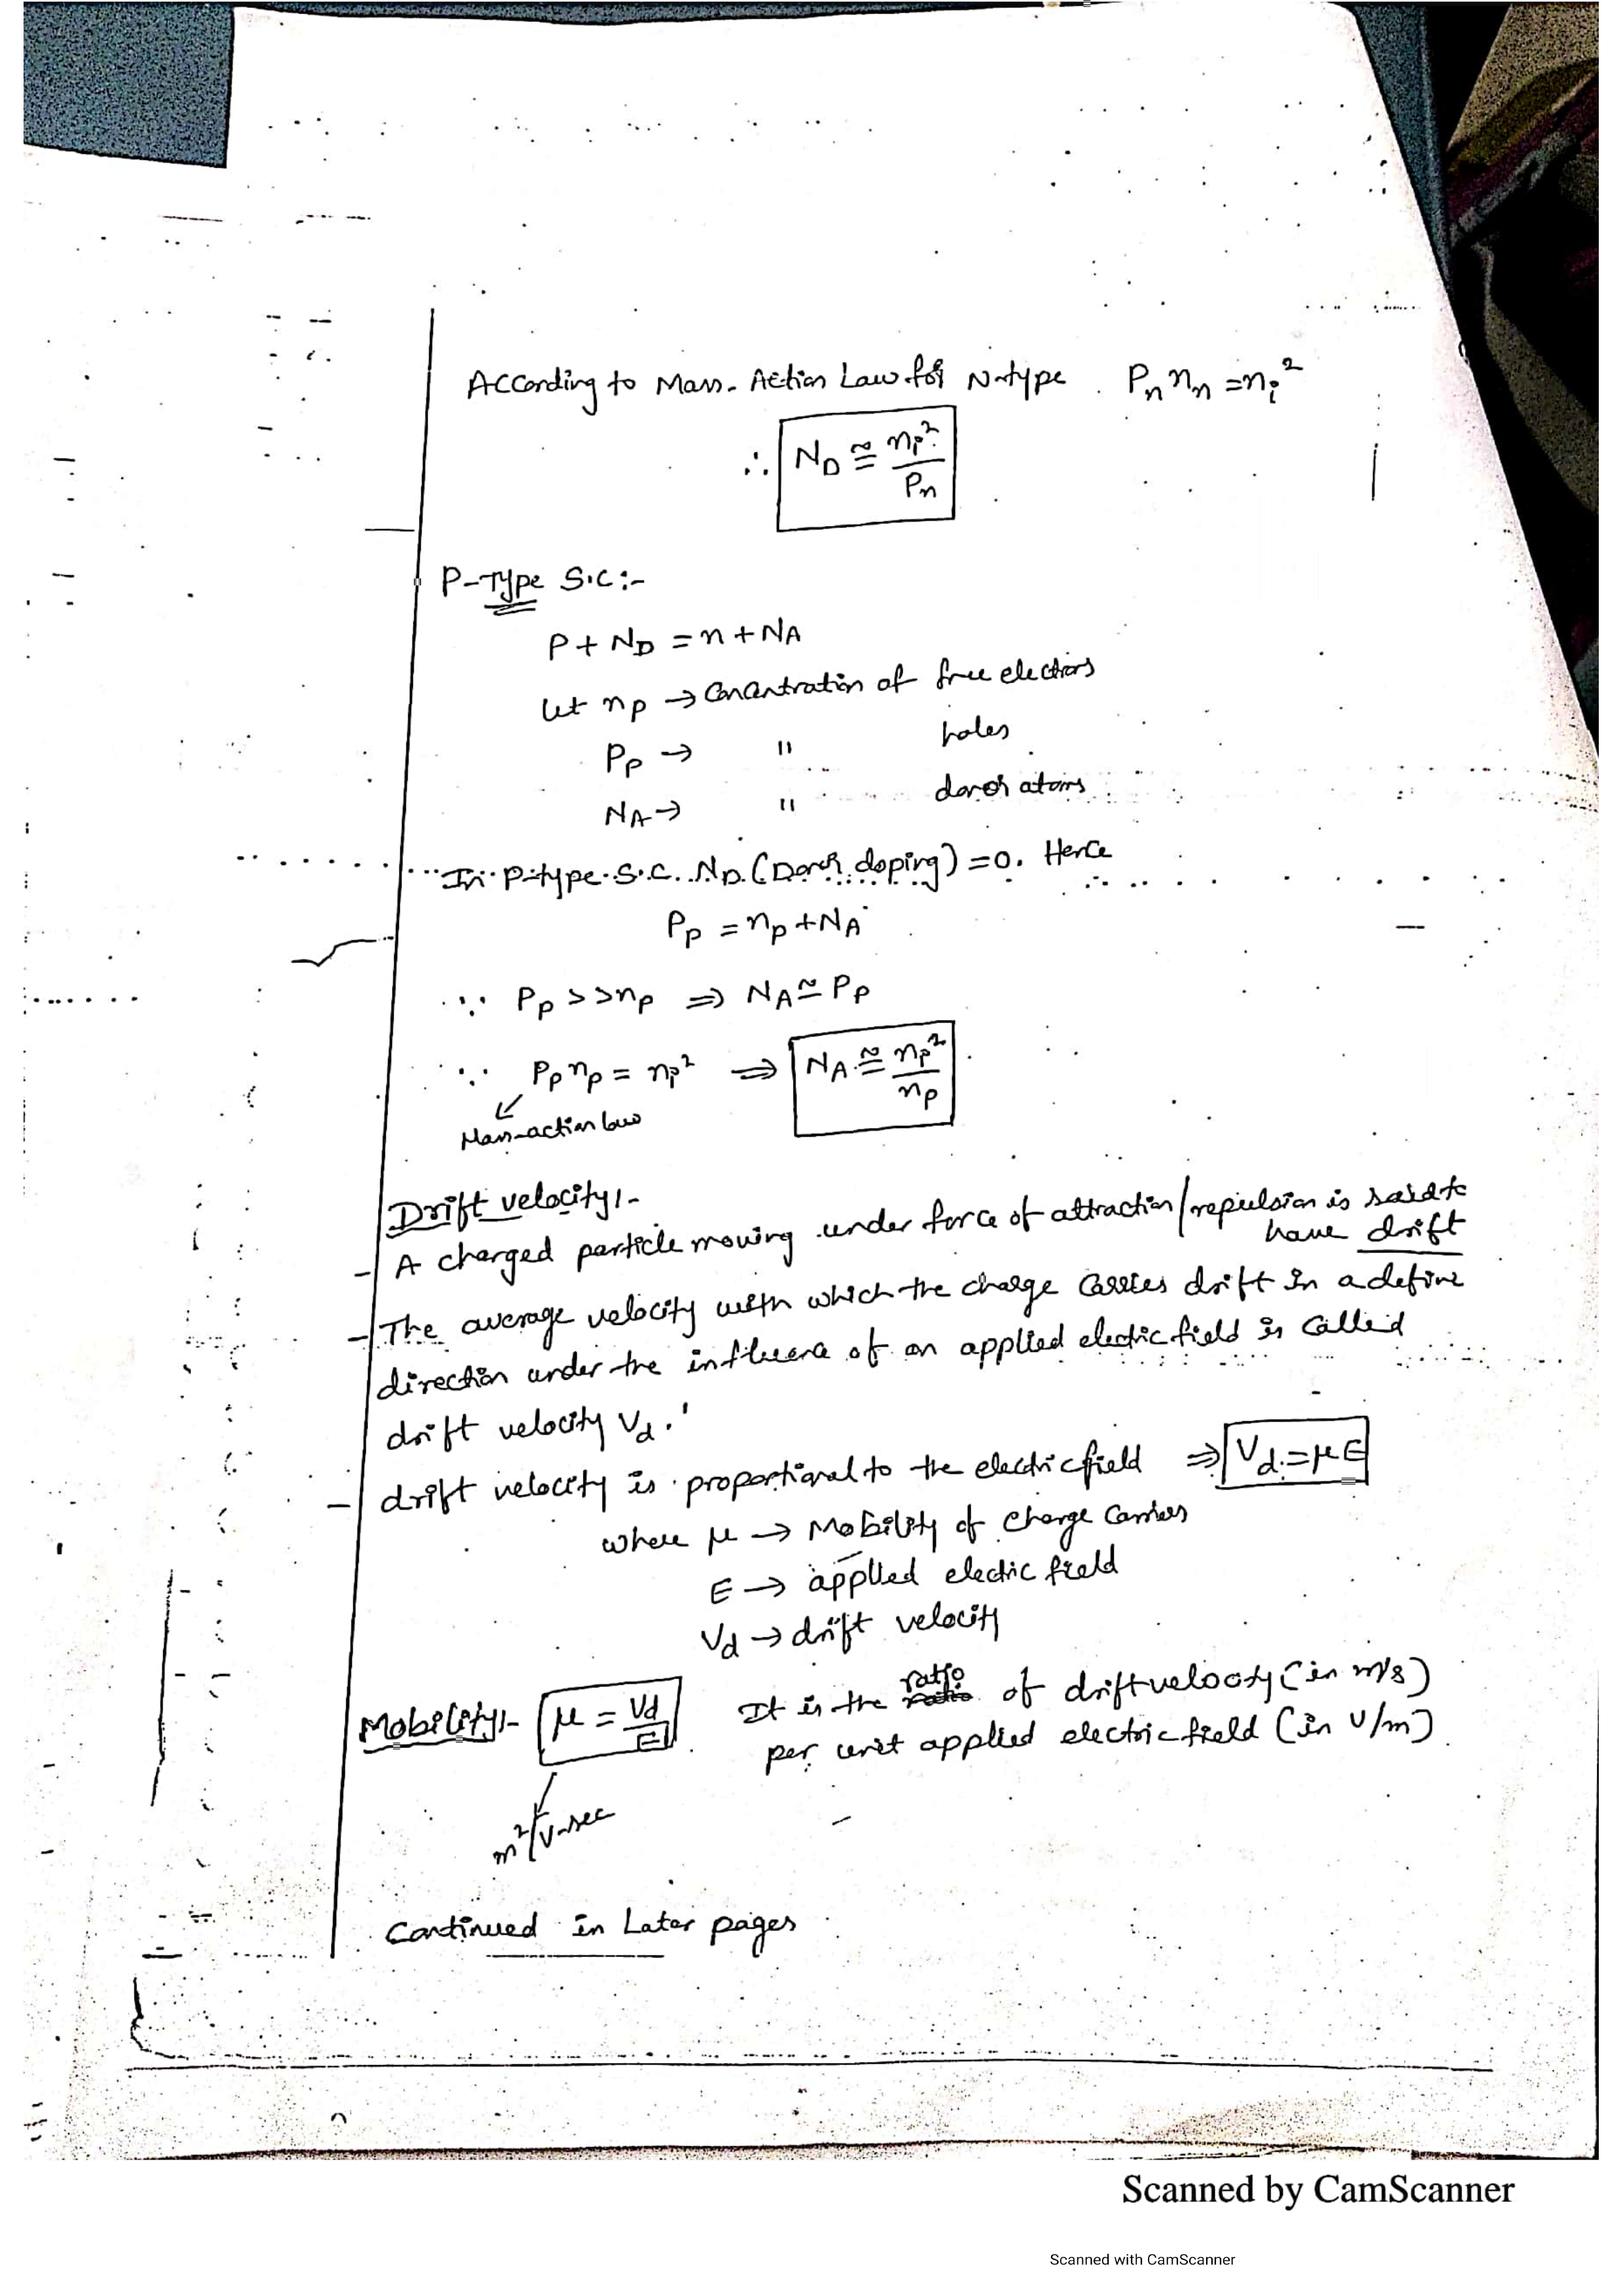 According to Mass-Action Law for N-type. Pn nn = ni²
∴ ND ≅ ni²/Pn
P-Type S.C:-
P + ND = n + NA
Let np → Concentration of free electrons
Pp → " holes
NA → " donor atoms
In P-type S.C. ND (Donor doping) = 0. Hence
Pp = np + NA
∵ Pp >> np ⇒ NA ≅ Pp
∵ Pp np = ni² ⇒ NA ≅ ni²/np
Mass-action law
Drift velocity:-
- A charged particle moving under force of attraction/repulsion is said to
have drift
- The average velocity with which the charge carries drift in a define
direction under the influence of an applied electric field is called
drift velocity Vd.
- drift velocity is proportional to the electric field ⇒ Vd = μE
where μ → Mobility of charge carriers
E → applied electric field
Vd → drift velocity
Mobility:- μ = Vd/E It is the ratio of drift velocity (in m/s)
per unit applied electric field (in V/m).
m²/V-sec
Continued in Later pages
Scanned by CamScanner
Scanned with CamScanner